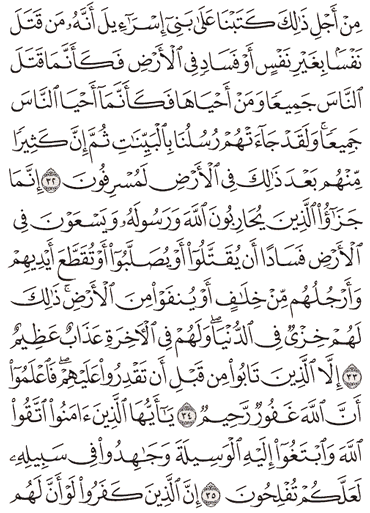 مِنْ أَجْلِ ذَٰلِكَ كَتَبْنَا عَلَىٰ بَنِىٓ إِسْرَٰٓءِيلَ أَنَّهُۥ مَن قَتَلَ
نَفْسًۢا بِغَيْرِ نَفْسٍ أَوْ فَسَادٍ فِى ٱلْأَرْضِ فَكَأَنَّمَا قَتَلَ
ٱلنَّاسَ جَمِيعًا وَمَنْ أَحْيَاهَا فَكَأَنَّمَآ أَحْيَا ٱلنَّاسَ
جَمِيعًا ۚ وَلَقَدْ جَآءَتْهُمْ رُسُلُنَا بِٱلْبَيِّنَٰتِ ثُمَّ إِنَّ كَثِيرًا
مِّنْهُم بَعْدَ ذَٰلِكَ فِى ٱلْأَرْضِ لَمُسْرِفُونَ ٣٢ إِنَّمَا
جَزَٰٓؤُا۟ ٱلَّذِينَ يُحَارِبُونَ ٱللَّهَ وَرَسُولَهُۥ وَيَسْعَوْنَ فِى
ٱلْأَرْضِ فَسَادًا أَن يُقَتَّلُوٓا۟ أَوْ يُصَلَّبُوٓا۟ أَوْ تُقَطَّعَ أَيْدِيهِمْ
وَأَرْجُلُهُم مِّنْ خِلَٰفٍ أَوْ يُنفَوْا۟ مِنَ ٱلْأَرْضِ ۚ ذَٰلِكَ
لَهُمْ خِزْىٌ فِى ٱلدُّنْيَا ۖ وَلَهُمْ فِى ٱلْـَٔاخِرَةِ عَذَابٌ عَظِيمٌ
٣٣ إِلَّا ٱلَّذِينَ تَابُوا۟ مِن قَبْلِ أَن تَقْدِرُوا۟ عَلَيْهِمْ ۖ فَٱعْلَمُوٓا۟
أَنَّ ٱللَّهَ غَفُورٌ رَّحِيمٌ ٣٤ يَٰٓأَيُّهَا ٱلَّذِينَ ءَامَنُوا۟ ٱتَّقُوا۟
ٱللَّهَ وَٱبْتَغُوٓا۟ إِلَيْهِ ٱلْوَسِيلَةَ وَجَٰهِدُوا۟ فِى سَبِيلِهِۦ
لَعَلَّكُمْ تُفْلِحُونَ ٣٥ إِنَّ ٱلَّذِينَ كَفَرُوا۟ لَوْ أَنَّ لَهُم